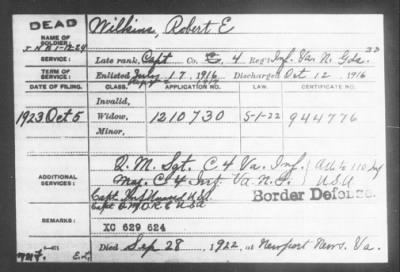 DEAD
NAME OF SOLDIER: Wilkins, Robert E
SERVICE: Late rank, Capt Co. 4 Reg't Inf. Va. N. Gds.
TERM OF SERVICE: Enlisted July 17, 1916 Discharged Oct 12, 1916
DATE OF FILING. CLASS. APPLICATION NO. LAW. CERTIFICATE NO.
Invalid,
1923 Oct 5 Widow, 1210730 5-1-22 944776
Minor,
ADDITIONAL SERVICES: Q. M. Sgt. C 4 Va. Inf.
C 4 Inf. Va. N. G. USA
Capt USA
Capt USA Border Defense.
REMARKS: XC 629 624
Died Sep 28, 1922, at Newport News, Va.